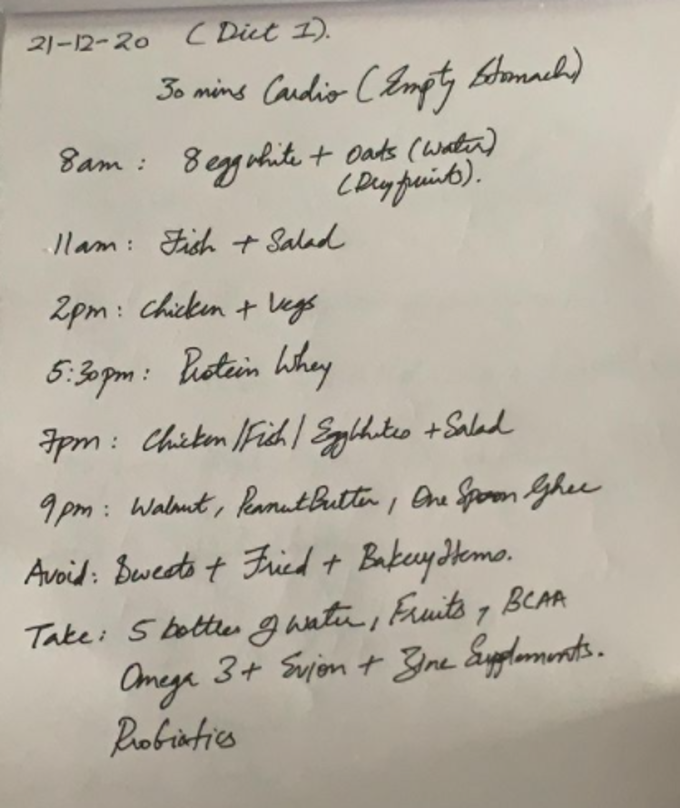 21-12-20 (Diet 1).
30 mins Cardio (Empty Stomach)
8am : 8 egg white + Oats (Water)
(Dry fruits).
11am : Fish + Salad
2pm : Chicken + Vegs
5:30pm : Protein Whey
7pm : Chicken/Fish/ Egg Whites + Salad
9pm : Walnut, Peanut Butter, One Spoon Ghee
Avoid : Sweets + Fried + Bakery Items.
Take : 5 bottles of water, Fruits, BCAA
Omega 3 + Evion + Zinc Supplements.
Probiotics